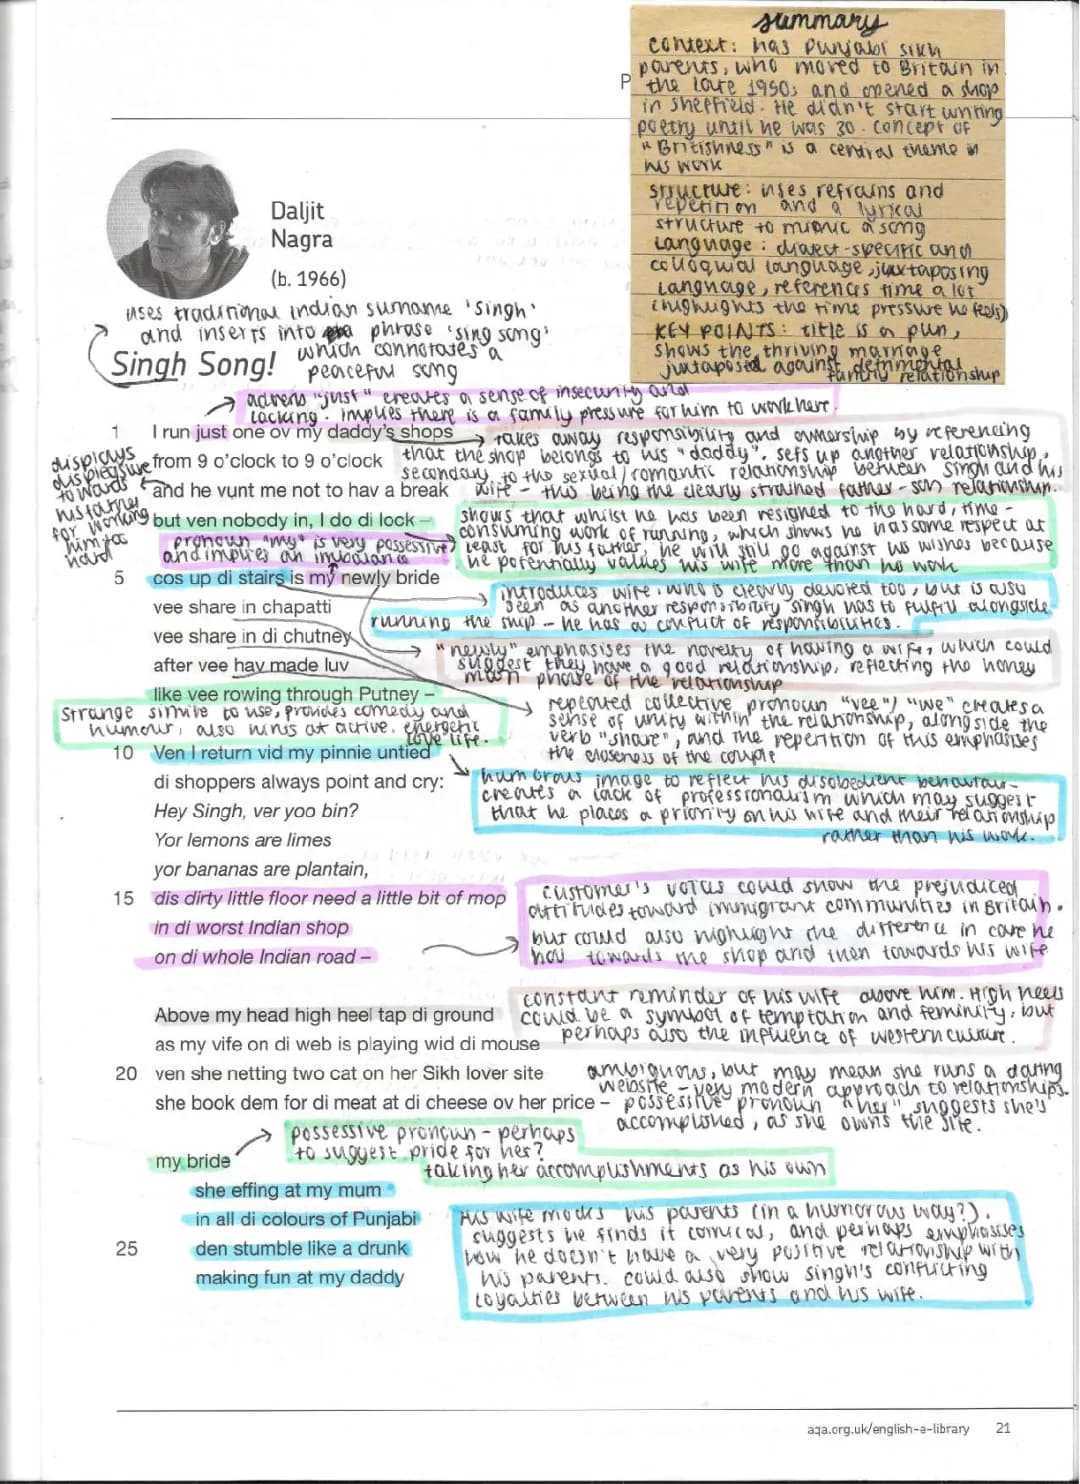 summary
context: has Punjabi Sikh
parents, who moved to Britain in
the late 1950s and opened a shop
in Sheffield. He didn't start writing
poetry until he was 30. Concept of
"Britishness" is a central theme in
his work
structure: uses refrains and
repetition and a lyrical
structure to mimic a song
Language: dialect-specific and
colloquial language, juxtaposing
language, references time a lot
(highlights the time pressure he feels)
KEY POINTS: title is a pun,
shows the thriving marriage
juxtaposed against detrimental
family relationship
P
Daljit
Nagra
(b. 1966)
uses traditional indian surname 'singh'
and inserts into phrase 'sing song'
which connotates a
peaceful song
Singh Song!
adverb "just" creates a sense of insecurity and
lacking. implies there is a family pressure for him to work here
1 I run just one ov my daddy's shops
from 9 o'clock to 9 o'clock
and he vunt me not to hav a break
but ven nobody in, I do di lock –
takes away responsibility and ownership by referencing
that the shop belongs to his "daddy". sets up another relationship,
secondary to the sexual/romantic relationship between Singh and his
wife - this being the clearly strained father-son relationship.
displays
displeasure
towards
his father
for working
him too
hard
shows that whilst he has been resigned to the hard, time-
consuming work of running, which shows he has some respect at
least for his father, he will still go against his wishes because
he potentially values his wife more than his work
pronoun "my" is very possessive
and implies an
5 cos up di stairs is my newly bride
vee share in chapatti
vee share in di chutney
after vee hav made luv
like vee rowing through Putney –
introduces wife, who is clearly devoted too, but is also
seen as another responsibility singh has to fulfil alongside
running the shop - he has a conflict of responsibilities.
"newly" emphasises the novelty of having a wife, which could
suggest they have a good relationship, reflecting the honey
moon phase of the relationship
strange simile to use, provides comedy and
humour, also hints at active, energetic
love life.
repeated collective pronoun "vee"/"we" creates a
sense of unity within the relationship, alongside the
verb "share", and the repetition of this emphasises
the closeness of the couple
10 Ven I return vid my pinnie untied
di shoppers always point and cry:
Hey Singh, ver yoo bin?
Yor lemons are limes
yor bananas are plantain,
15 dis dirty little floor need a little bit of mop
in di worst Indian shop
on di whole Indian road –
humorous image to reflect his disobedient behaviour-
creates a lack of professionalism which may suggest
that he places a priority on his wife and their relationship
rather than his work.
customer's voices could show the prejudiced
attitudes toward immigrant communities in Britain.
but could also highlight the difference in care he
has towards the shop and then towards his wife
Above my head high heel tap di ground
as my vife on di web is playing wid di mouse
20 ven she netting two cat on her Sikh lover site
she book dem for di meat at di cheese ov her price –
constant reminder of his wife above him. High heels
could be a symbol of temptation and feminity, but
perhaps also the influence of western culture.
ambiguous, but may mean she runs a dating
website - very modern approach to relationships.
possessive pronoun "her" suggests she's
accomplished, as she owns the site.
possessive pronoun - perhaps
to suggest pride for her?
taking her accomplishments as his own
my bride
she effing at my mum
in all di colours of Punjabi
25 den stumble like a drunk
making fun at my daddy
His wife mocks his parents (in a humorous way?).
suggests he finds it comical, and perhaps emphasises
how he doesn't have a very positive relationship with
his parents. could also show singh's conflicting
loyalties between his parents and his wife.
aqa.org.uk/english-e-library 21